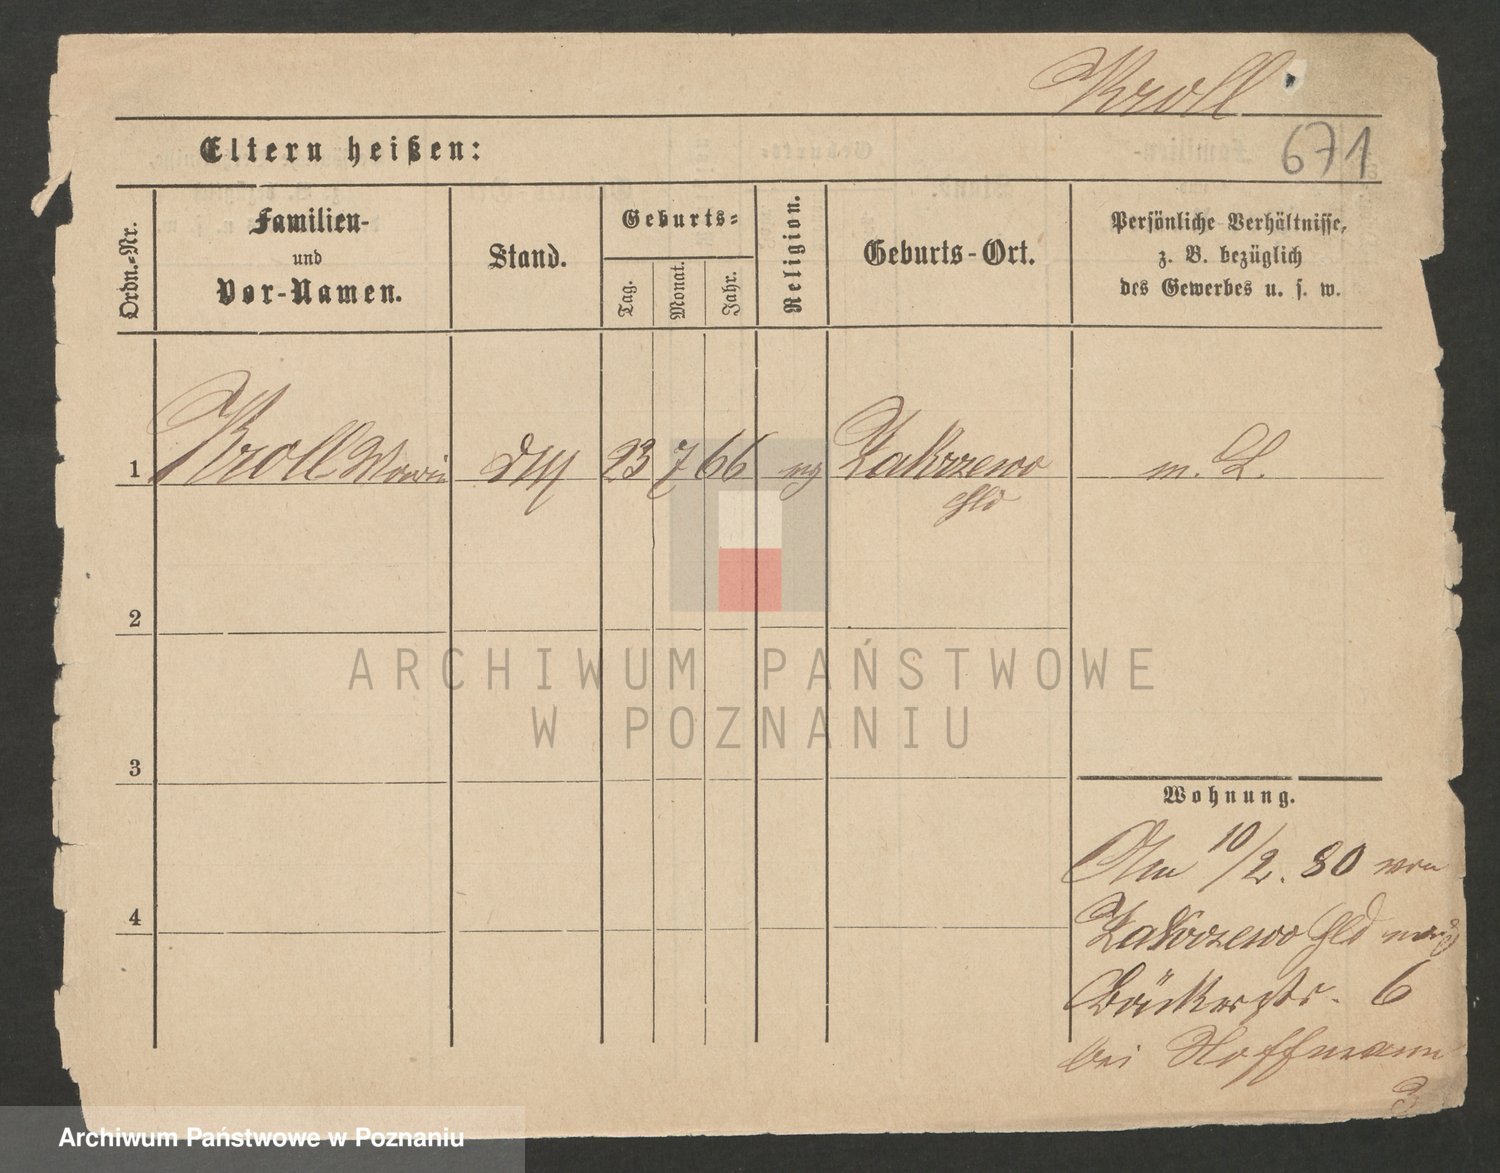 Kroll
671
Eltern heißen:
Ordn.-Nr.
Familien-
und
Vor-Namen.
Stand.
Geburts-
Tag.
Monat.
Jahr.
Religion.
Geburts-Ort.
Persönliche Verhältnisse,
z. B. bezüglich
des Gewerbes u. s. w.
1 Kroll 23 7 66 Zakrzewo m. L.
Hld
2
3
4
Wohnung.
Am 10/2. 80 von
Zakrzewo Hld nach
Bäckerstr. 6
bei Hoffmann
ARCHIWUM PAŃSTWOWE
W POZNANIU
Archiwum Państwowe w Poznaniu